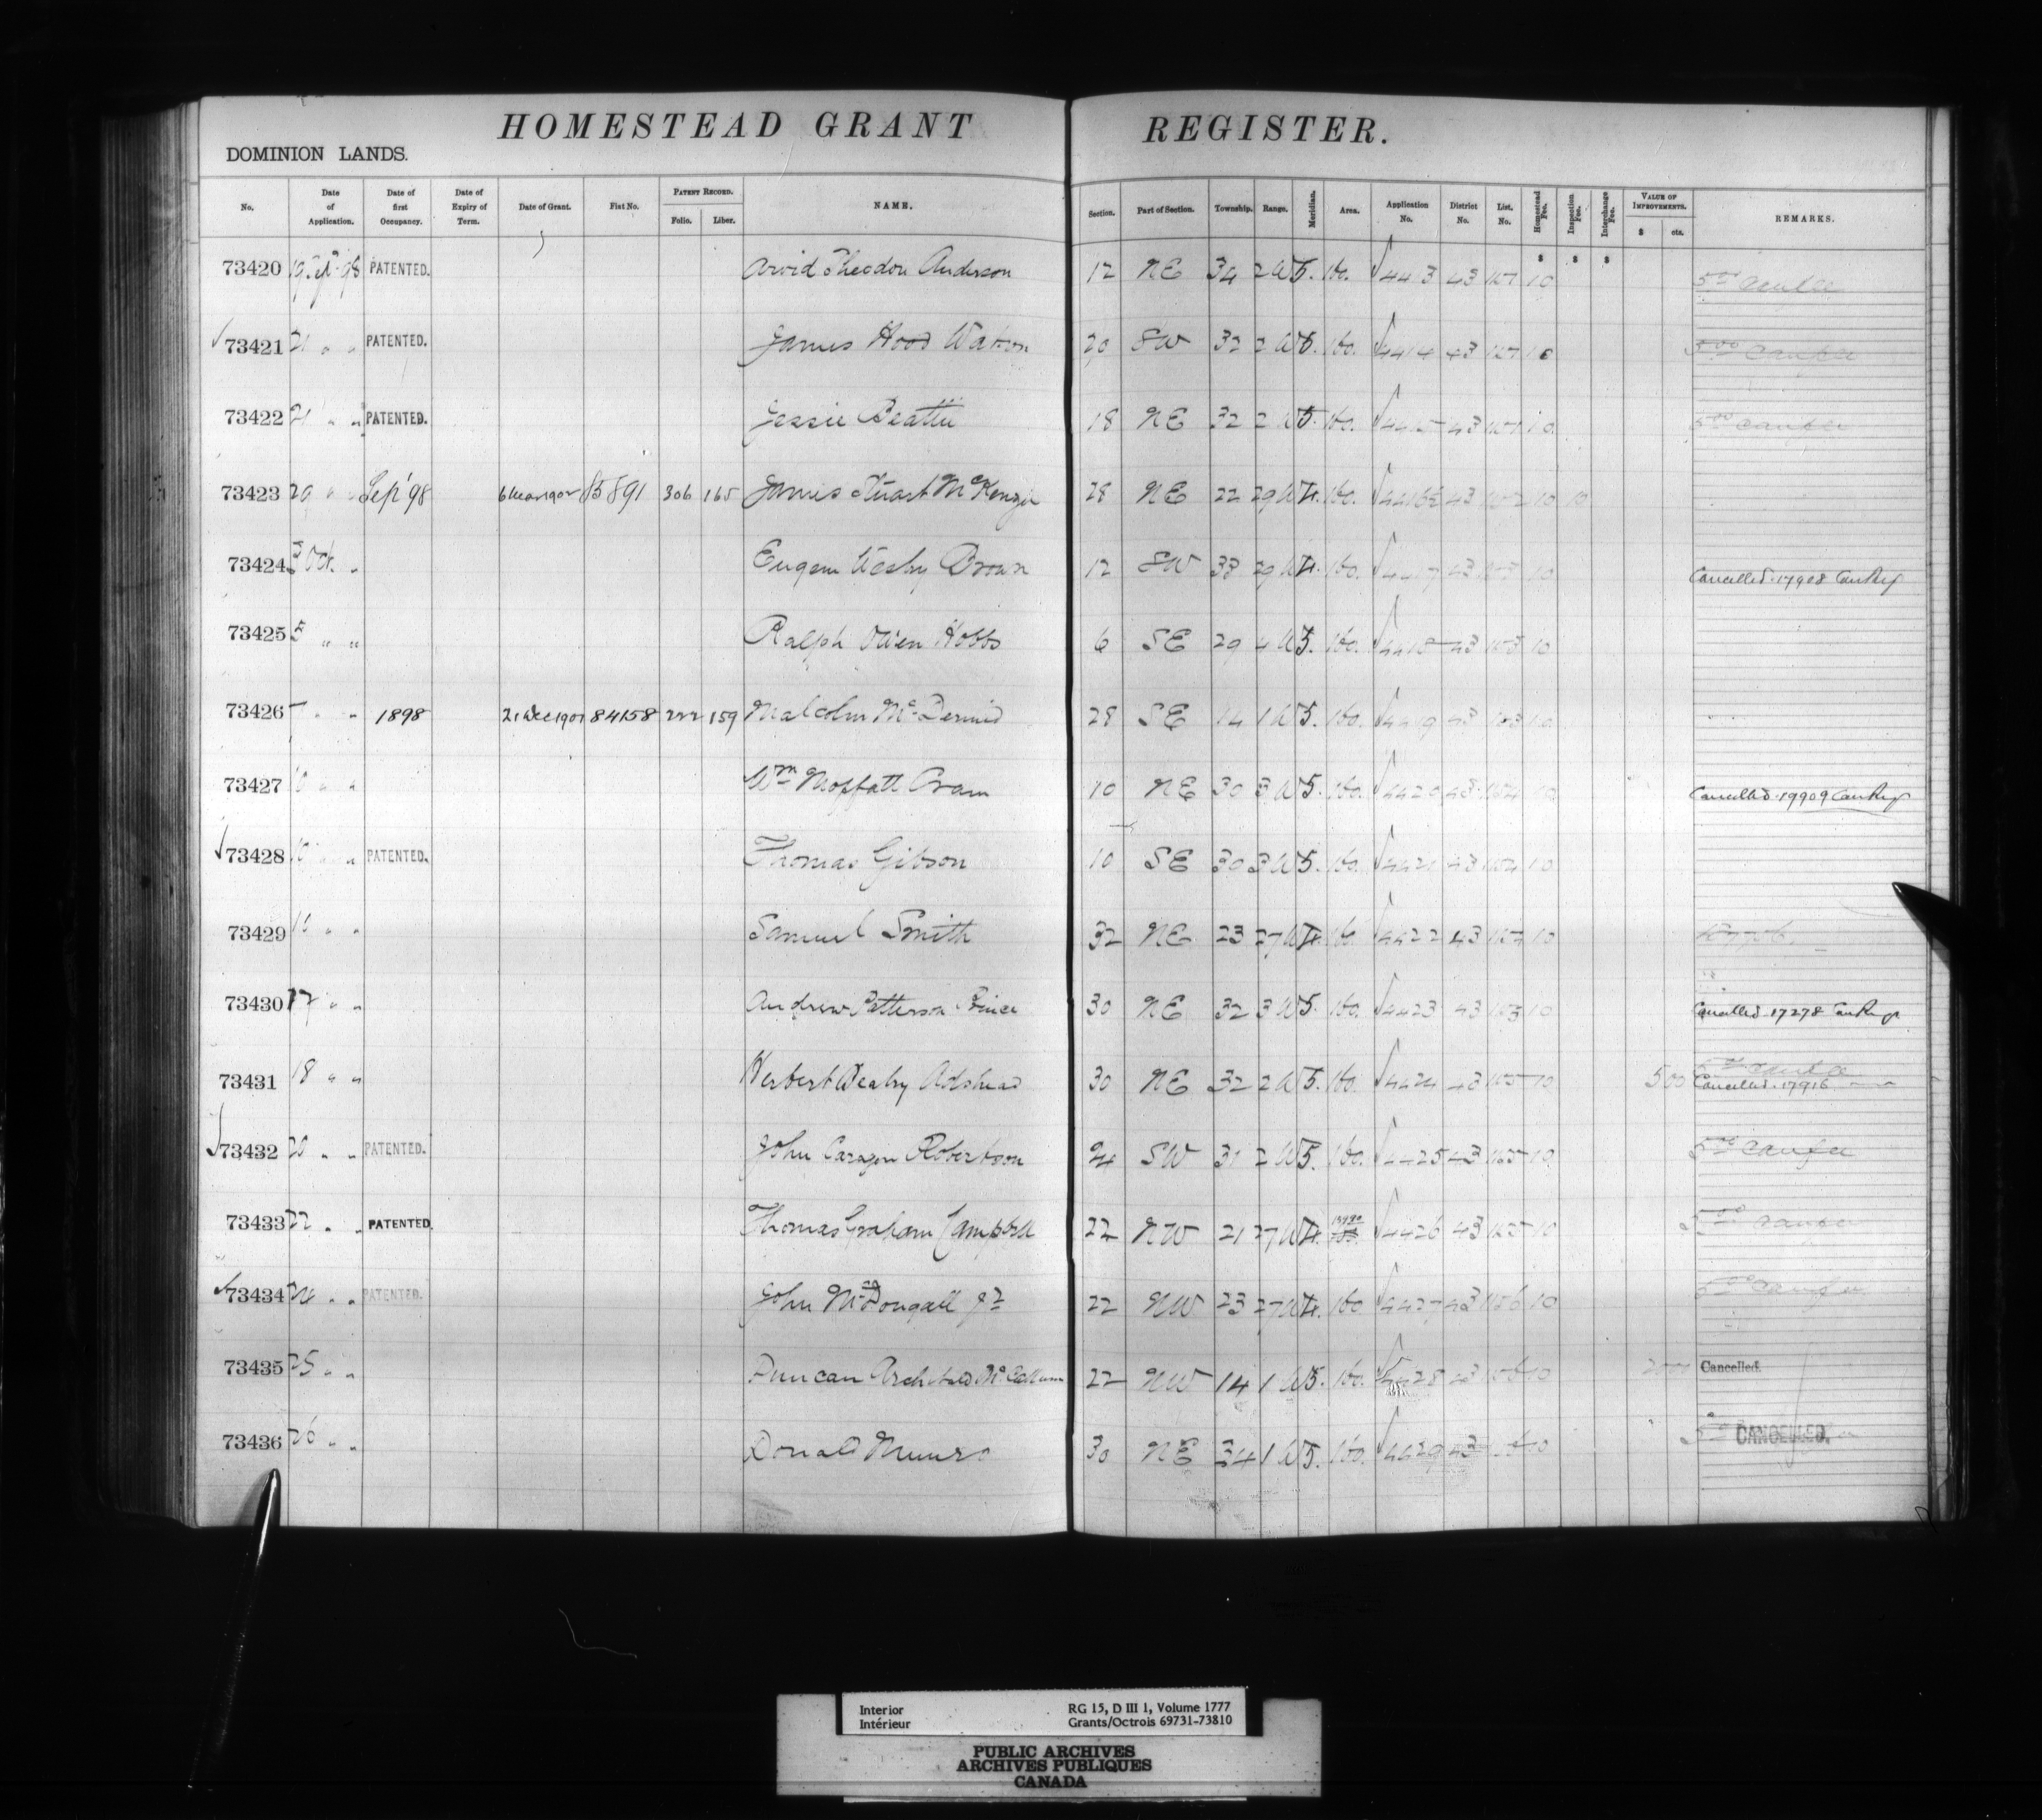 HOMESTEAD GRANT REGISTER.
DOMINION LANDS.
No. Date of Application. Date of first Occupancy. Date of Expiry of Term. Date of Grant. Fiat No. PATENT RECORD. Folio. Liber. NAME. Section. Part of Section. Township. Range. Meridian. Area. Application No. District No. List. No. Homestead Fee. Inspection Fee. Interchange Fee. VALUE OF IMPROVEMENTS. $ cts. REMARKS.
73420 19 Sept 98 PATENTED. Arvid Theodor Anderson 12 NE 34 2 W 5. 160. 43 10
73421 21 " " PATENTED. James Hood Watson 20 SW 32 2 W 5. 160. 4414 43 10
73422 21 " " PATENTED. Jessie Beattie 18 NE 32 2 W 5. 160. 4415 43 10
73423 29 " " Sep '98 306 165 James Stuart McKenzie 28 NE 22 29 W 4. 160. 43 10 10
73424 3 Oct. " Eugene Wesley Brown 12 SW 33 29 W 4. 160. 4417 43 10 Cancelled 17908 Can Reg
73425 5 " " Ralph Owen Hobbs 6 SE 29 4 W 5. 160. 4418 43 10
73426 7 " " 1898 21 Dec 1901 84158 222 159 Malcolm McDermid 28 SE 14 1 W 5. 160. 4419 43 10
73427 10 " " Wm Moffatt Cram 10 NE 30 3 W 5. 160. 4420 43 10 Cancelled 19909 Can Reg
73428 10 " " PATENTED. Thomas Gibson 10 SE 30 3 W 5. 160. 4421 43 10
73429 " " Samuel Smith 32 NE 23 27 W 4. 160. 4422 43 10
73430 17 " " Andrew Patterson Price 30 NE 32 3 W 5. 160. 4423 43 10 Cancelled 17278 Can Reg
73431 18 " " Herbert Wesley Adshead 30 NE 32 2 W 5. 160. 4424 43 10 Cancelled 17916
73432 20 " " PATENTED. John Robertson SW 31 2 W 5. 160. 4425 43 10
73433 22 " " PATENTED. Thomas Graham Campbell 22 NW 21 27 W 4. 4426 43 10
73434 24 " " PATENTED. John McDougall Jr 22 NW 23 27 W 4. 160 4427 43 10
73435 25 " " Duncan Archibald McCallum 22 NW 14 1 W 5. 160. 4428 43 10 Cancelled.
73436 26 " " Donald Munro 30 NE 34 1 W 5. 160. 4429 43 10 CANCELLED.
Interior RG 15, D III 1, Volume 1777
Intérieur Grants/Octrois 69731-73810
PUBLIC ARCHIVES
ARCHIVES PUBLIQUES
CANADA